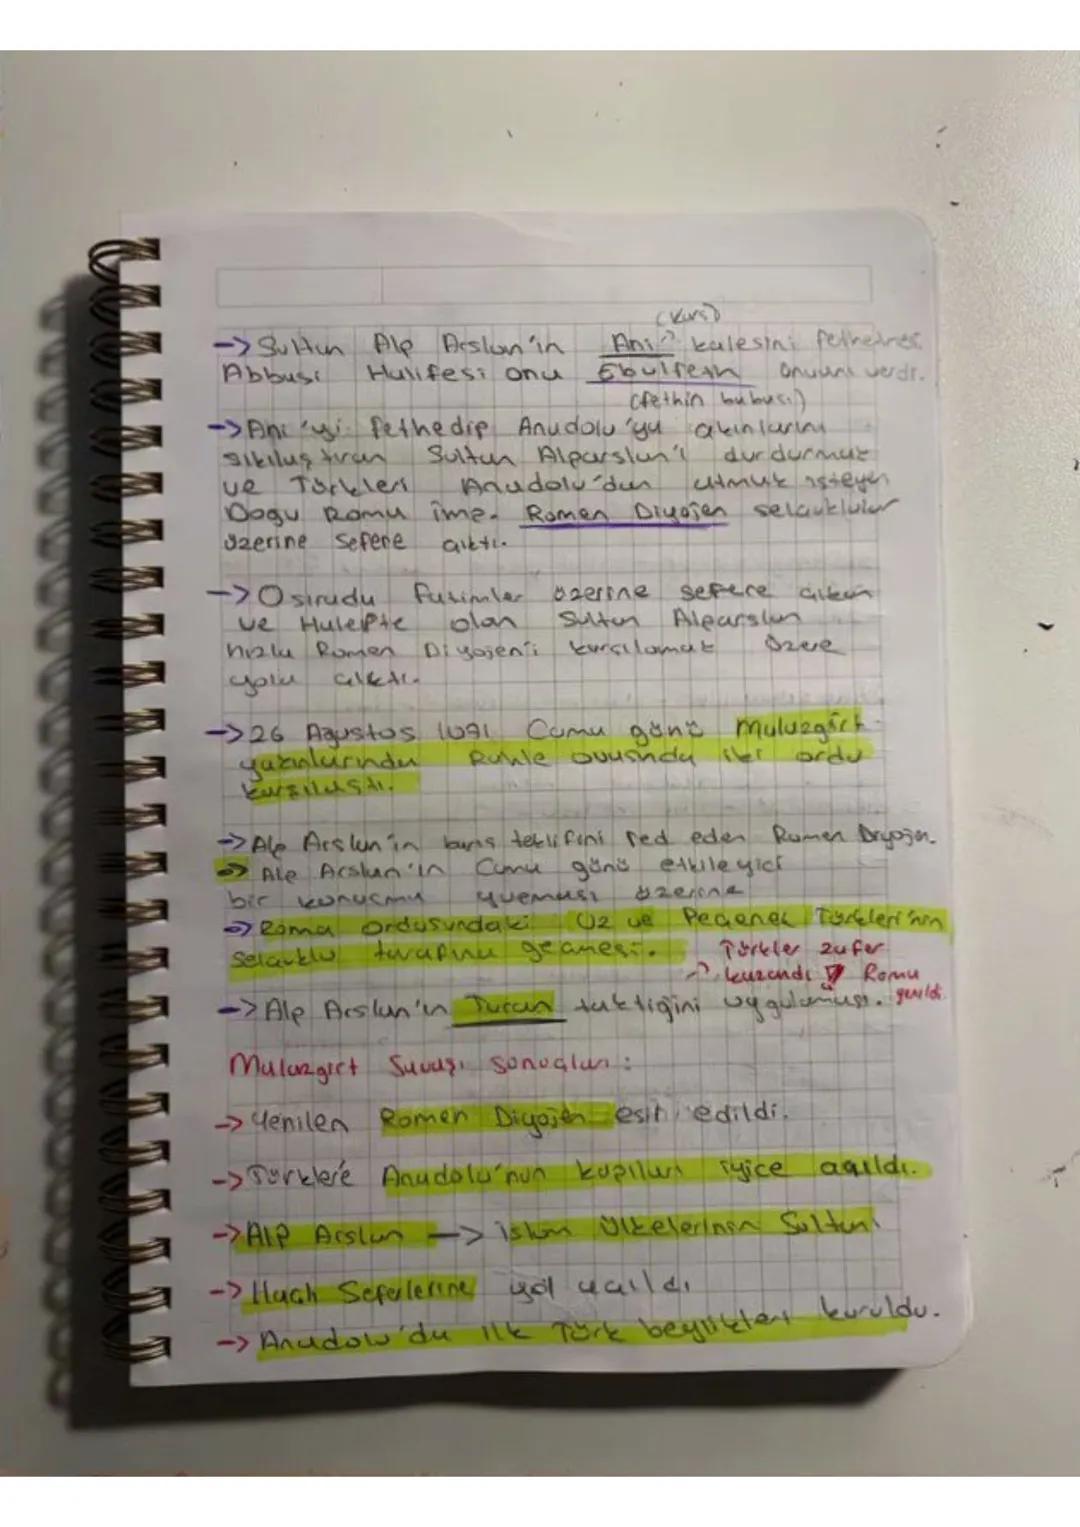 (Kars)
-> Sultan Alp Arslan'ın Ani kalesini fethetmesi
Abbasi Halifesi onu Ebulfeth ünvanı verdi.
(fethin babası)
-> Ani'yi fethedip Anadolu'ya akınlarını
sıkılaştıran Sultan Alparslan'ı durdurmak
ve Türkleri Anadolu'dan atmak isteyen
Doğu Roma imp. Romen Diyojen selçuklular
üzerine sefere çıktı.
-> O sırada Fatımiler üzerine sefere çıkan
ve Halep'te olan Sultan Alparslan
hızla Romen Diyojen'i karşılamak üzere
yola çıktı.
-> 26 Ağustos 1071 Cuma günü Malazgirt
yakınlarında Rahle ovasında iki ordu
karşılaştı.
-> Alp Arslan'ın barış teklifini red eden Romen Diyojen.
-> Alp Arslan'ın Cuma günü etkileyici
bir konuşma yapması üzerine
-> Roma ordusundaki Uz ve Peçenek Türkleri'nin
Selçuklu tarafına geçmesi.
Türkler zafer
kazandı Roma
yenildi
-> Alp Arslan'ın Turan taktiğini uygulaması.
Malazgirt Savaşı sonuçları:
-> Yenilen Romen Diyojen esir edildi.
-> Türklere Anadolu'nun kapıları iyice açıldı.
-> Alp Arslan -> islam ülkelerinin Sultanı
-> Haçlı Seferlerine yol açıldı
-> Anadolu'da ilk Türk beylikleri kuruldu.